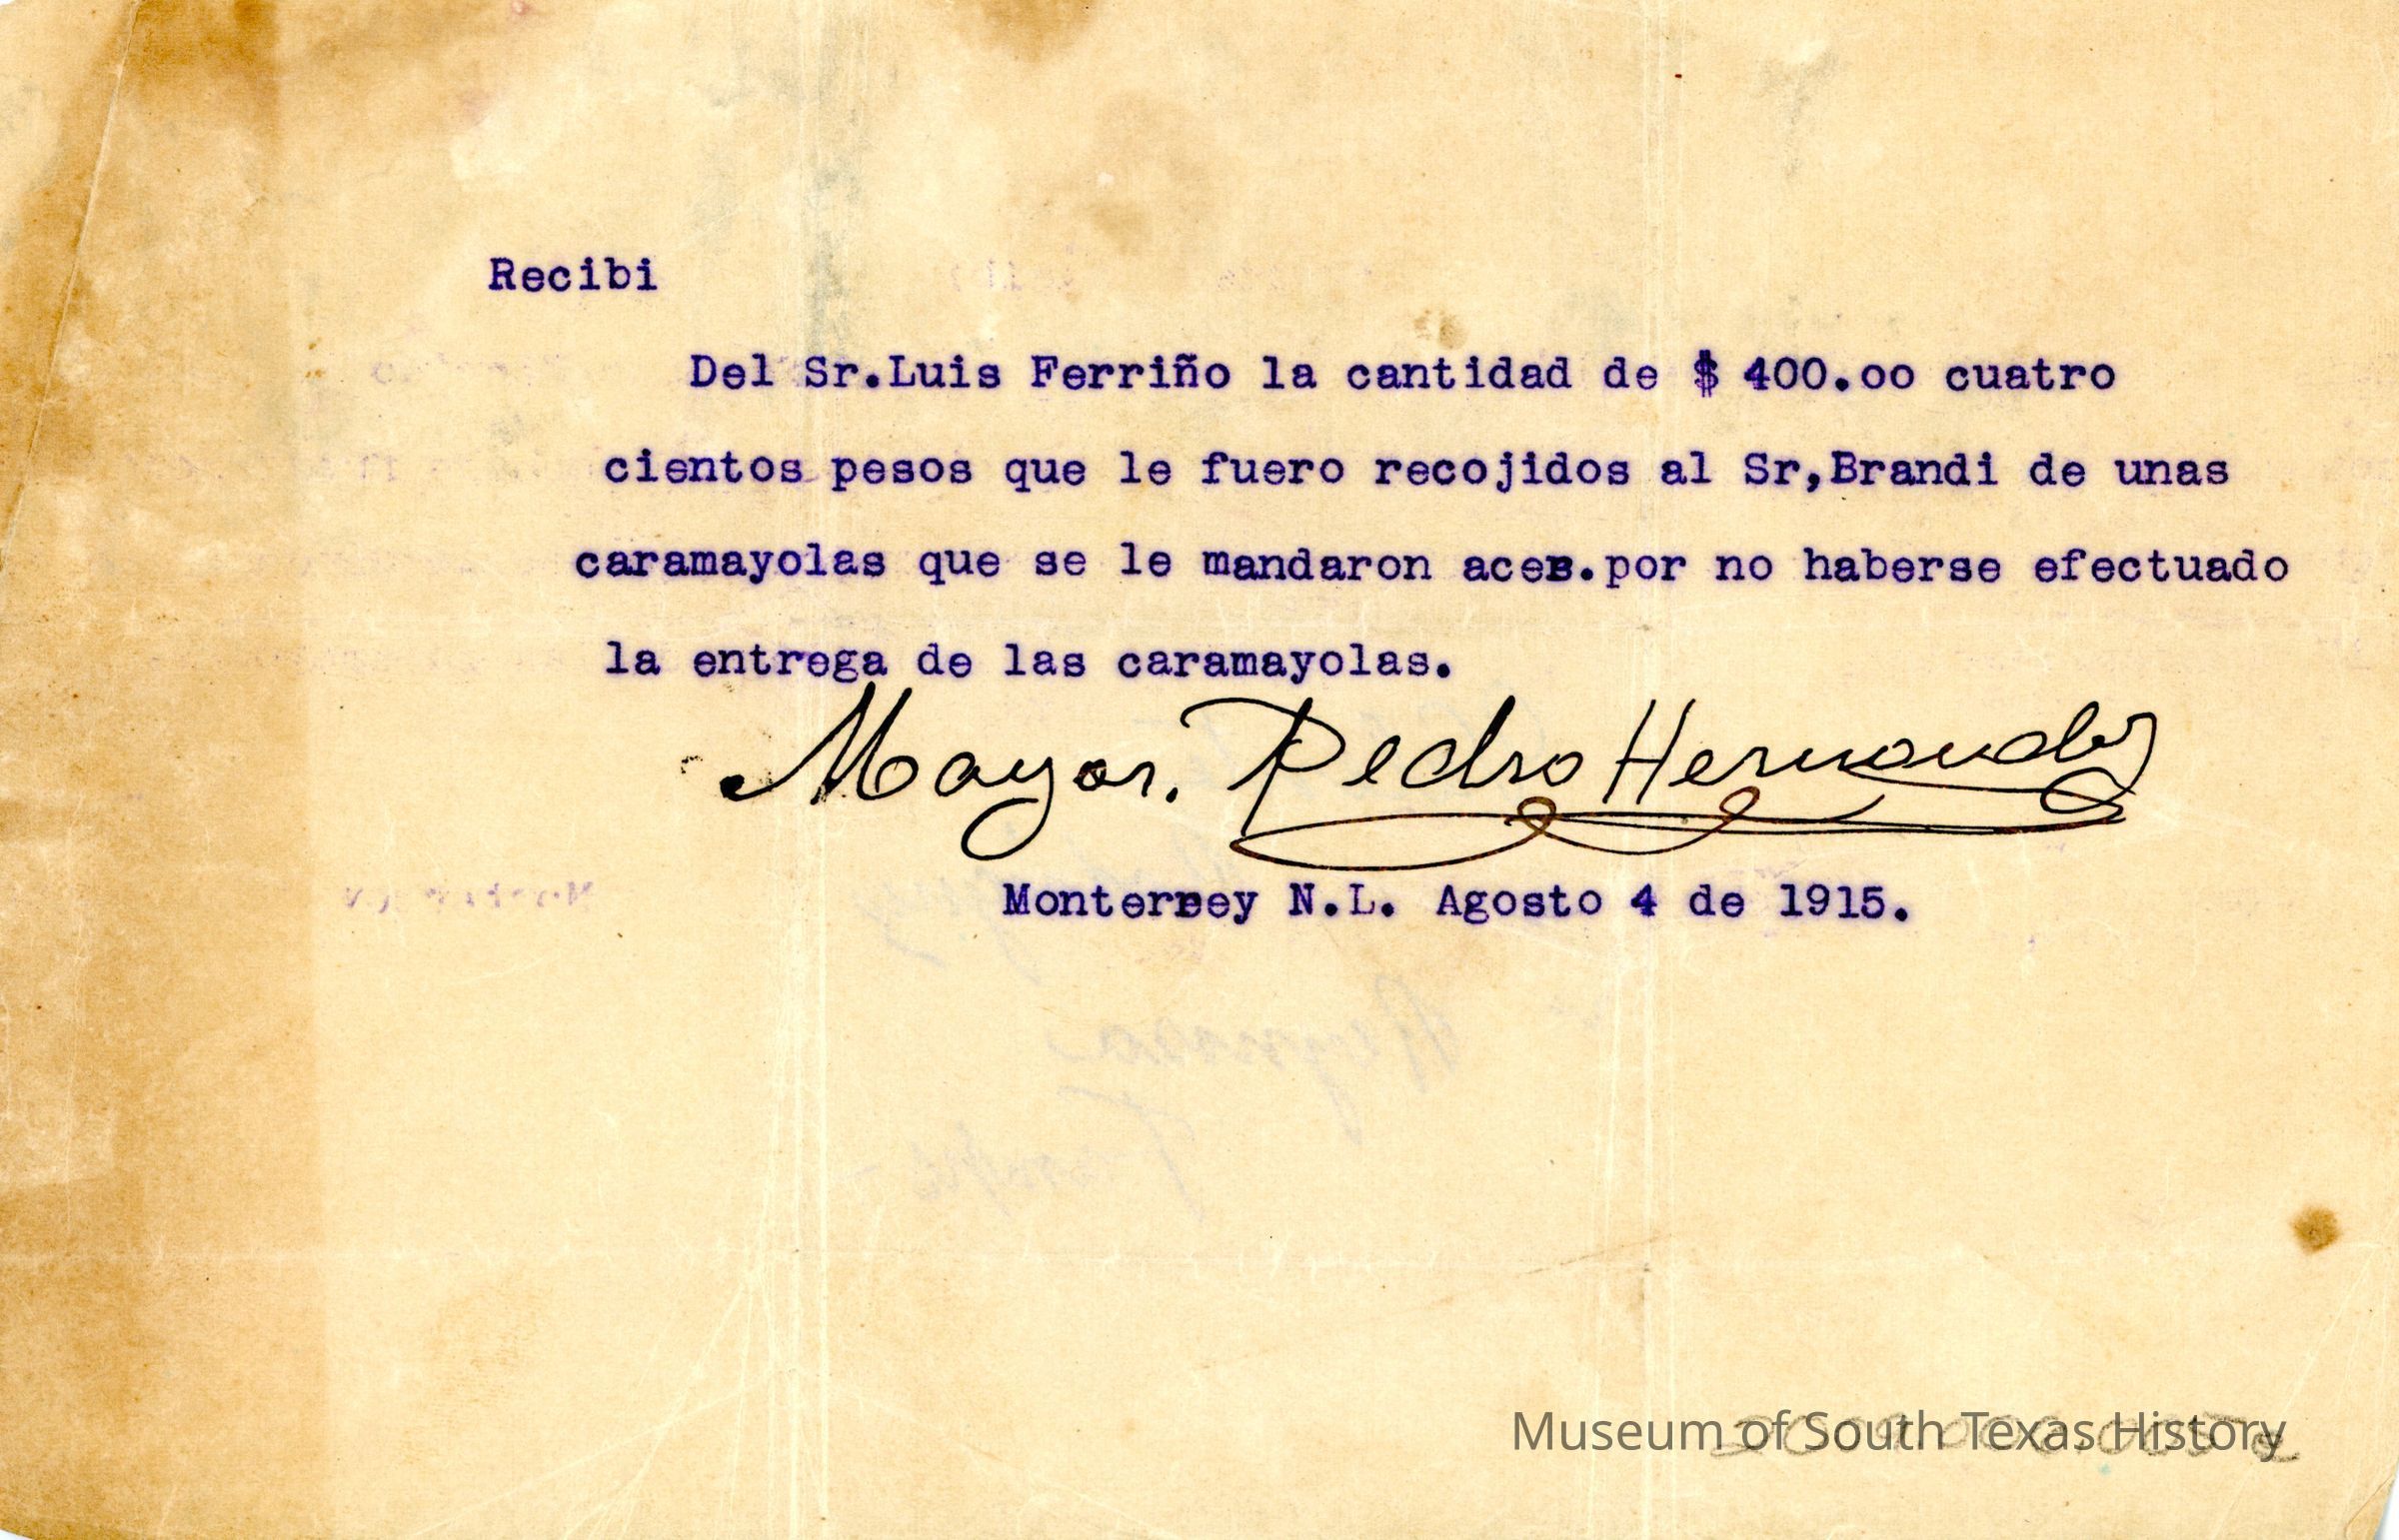 Recibi
Del Sr.Luis Ferriño la cantidad de $ 400.oo cuatro
cientos pesos que le fuero recojidos al Sr,Brandi de unas
caramayolas que se le mandaron acer.por no haberse efectuado
la entrega de las caramayolas.
Mayor. Pedro Hernandez
Monterrey N.L. Agosto 4 de 1915.
Museum of South Texas History